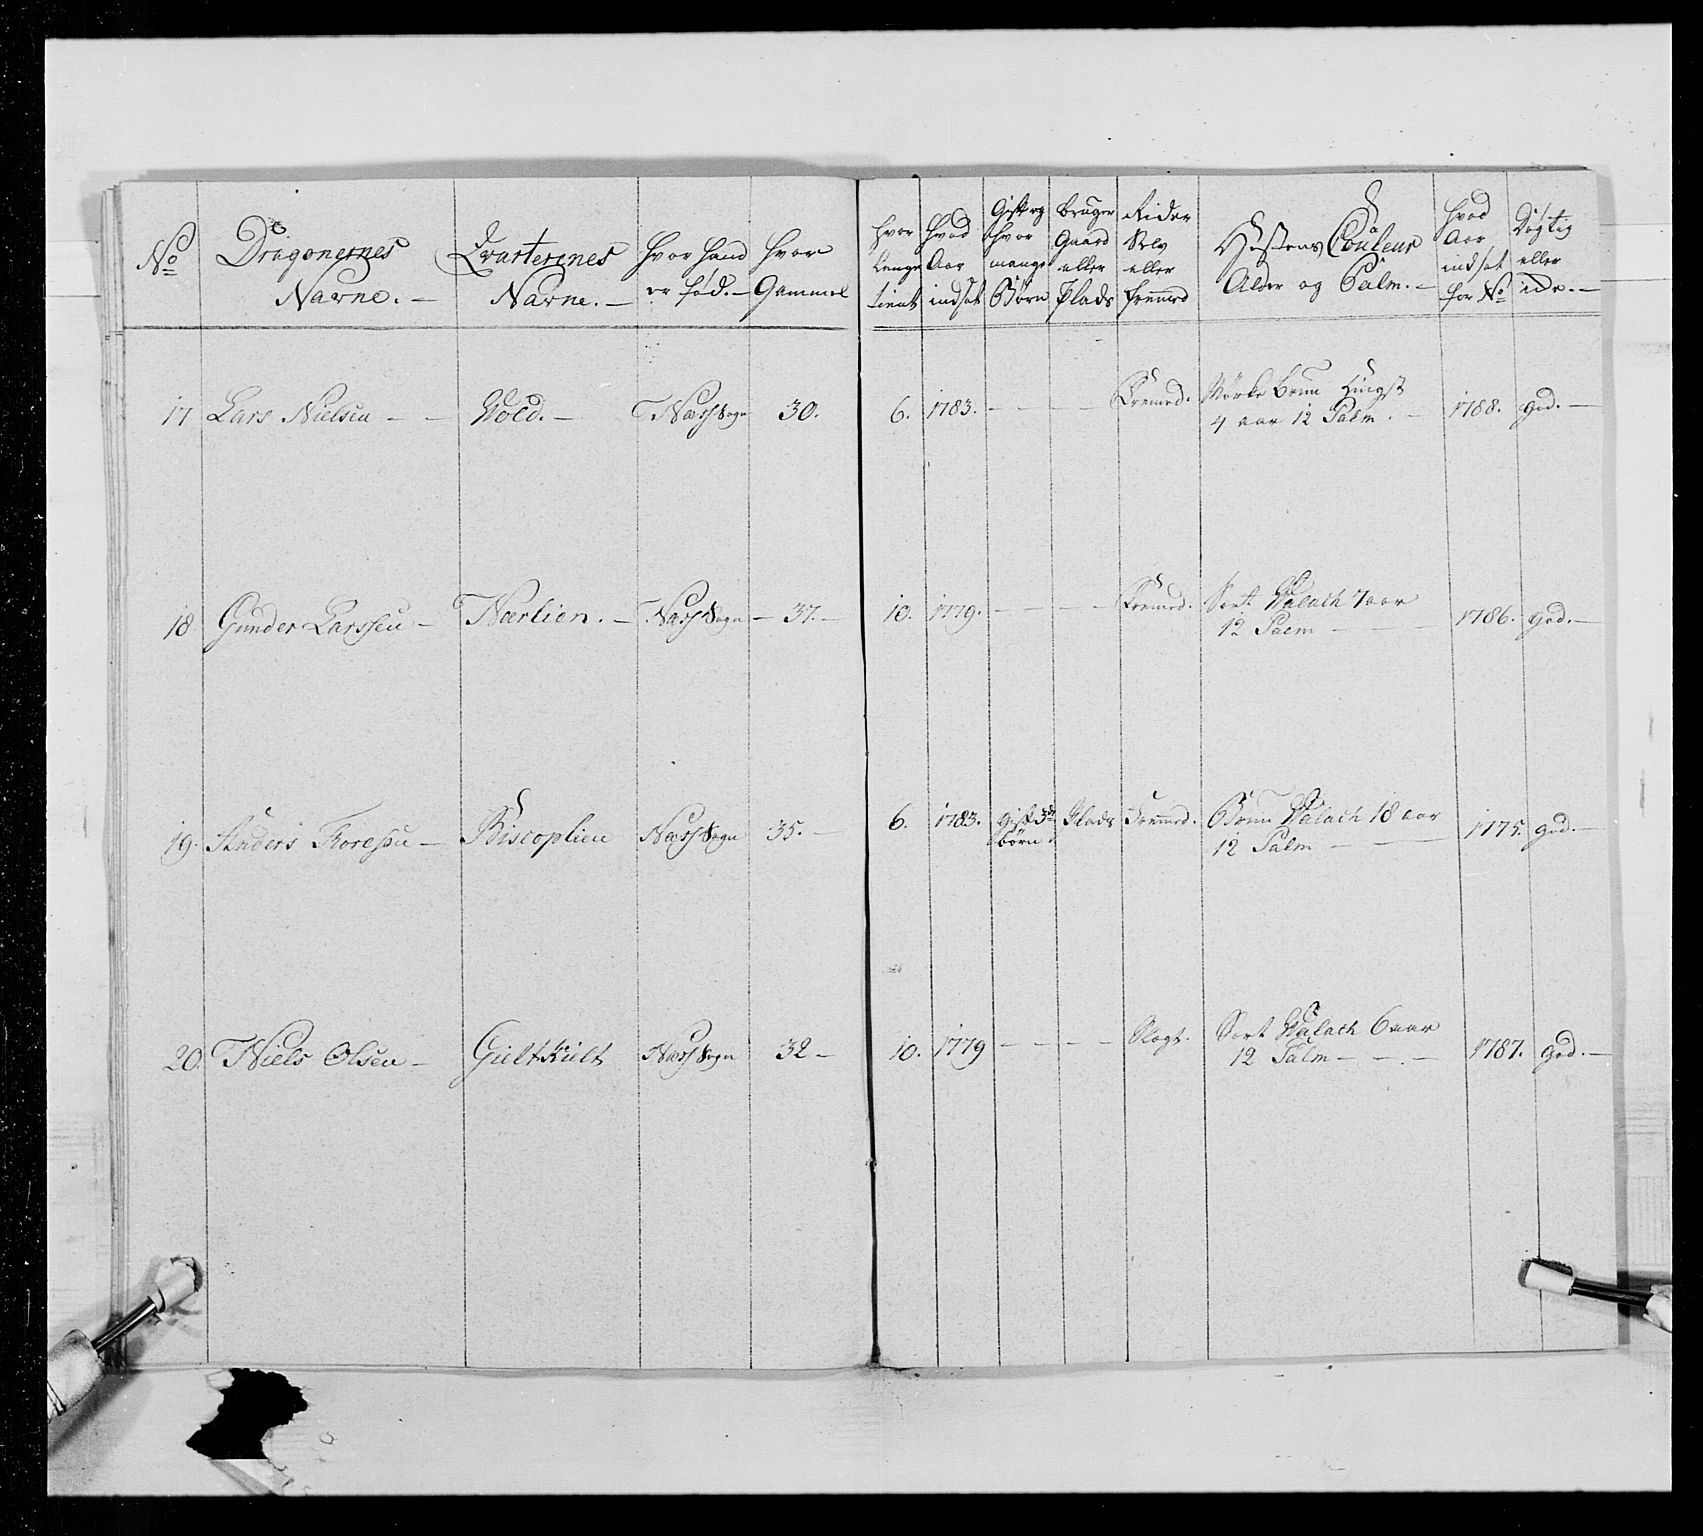 No
Dragonernes
Navne. —
Qvarterenes
Navne. —
hvor hand
er fød. —
hvor
Gammel
hvor
lenge
tient
hvad
Aar
indsat
Gift og
hvor
mange
Børn
bruger
Gaard
eller
Plads
Rider
Selv
eller
fremmed
Hestens Couleur
Alder og Palm. —
hvad
Aar
indsat
for No
Døgtig
eller
ide. —
17 Lars Nielsen — — Vold. — Næss Sogn 30. 6. 1783. — — — — Fremed. Mørke Brun Hingst
4 aar 12 Palm — 1788. god. —
18 Gunder Larssen — Nærlien. — Næss Sogn — 37. — 10. 1779. — — — — Fremed. Sort Walach 7 aar
12 Palm — — 1786. god. —
19. Anders Toresen — Biscoplien Næss Sogn 35. — 6. 1783. Gift 3de Plads Fremmed. Brun Walach 18 aar
børn. 12 Palm — — 1775. god. —
20. Niels Olsen — Gieltkiilt Næss Sogn 32 — 10. 1779 — — — — Slegt. Sort Walach 6 aar
12 Palm — — . — 1787. god. —